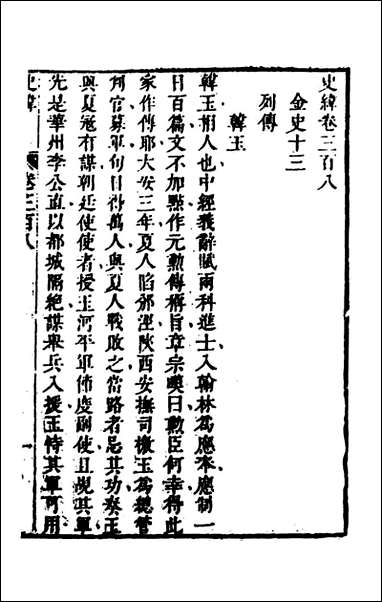 史緯卷三百八
金史十三
列傳
韓玉
韓玉相人也中經義辭賦兩科進士入翰林爲應奉應制一
日百篇文不加點作元勲傳稱旨章宗嘆曰勲臣何幸得此
家作傳耶大安三年夏人陷邠涇陝西安撫司檄玉爲總管
判官募軍旬日得萬人與夏人戰敗之當路者忌其功奏玉
與夏寇有謀朝廷使使者授玉河平軍節度副使且覘其軍
先是華州李公直以都城隔絶謀舉兵入援玉恃其軍可用
史緯 卷三百八 一